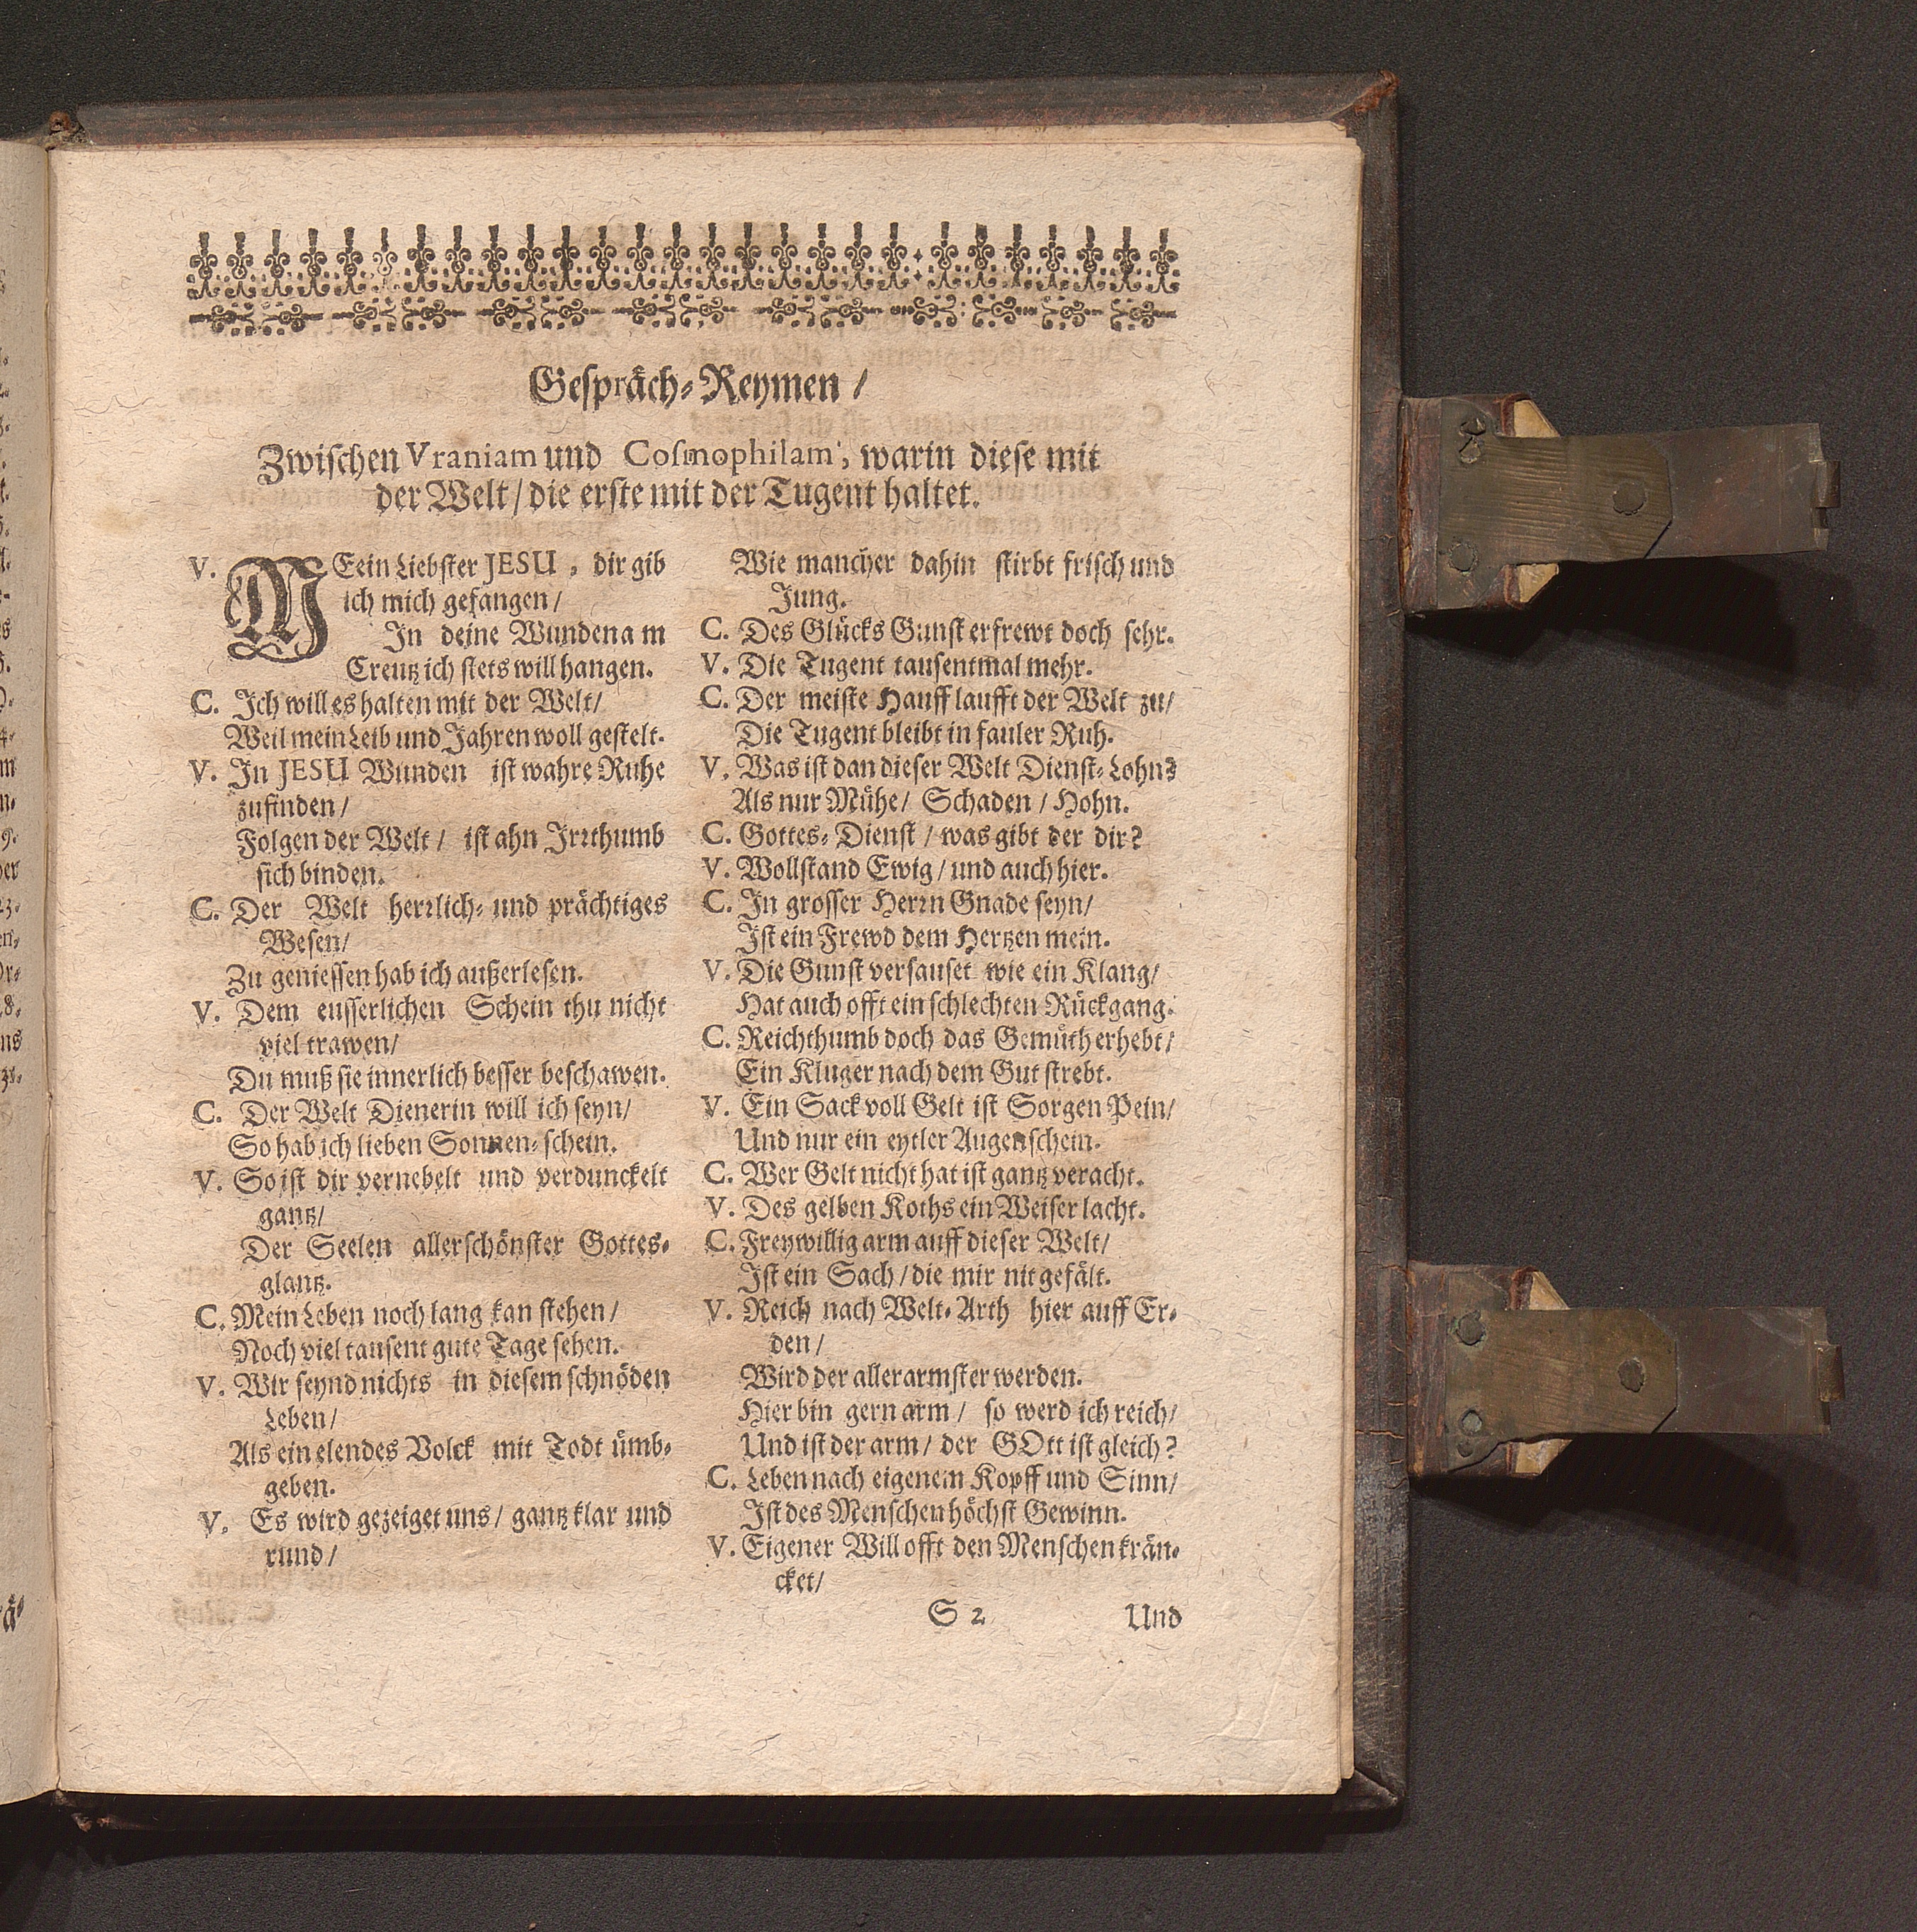 Gespräch-Reymen/
Zwischen Vraniam und Cosmophilam, warin diese mit
der Welt/ die erste mit der Tugent haltet.
V. MEein Liebster JESU, dir gib
ich mich gefangen/
In deine Wunden am
Creutz ich stets will hangen.
C. Ich will es halten mit der Welt/
Weil mein Leib und Jahren woll gestelt.
V. In JESU Wunden ist wahre Ruhe
zufinden/
Folgen der Welt/ ist ahn Irrthumb
sich binden.
C. Der Welt herrlich- und prächtiges
Wesen/
Zu geniessen hab ich außerlesen.
V. Dem eusserlichen Schein thu nicht
viel trawen/
Du muß sie innerlich besser beschawen.
C. Der Welt Dienerin will ich seyn/
So hab ich lieben Sonnen-schein.
V. So ist dir vernebelt und verdunckelt
gantz/
Der Seelen allerschönster Gottes-
glantz.
C. Mein Leben noch lang kan stehen/
Noch viel tausent gute Tage sehen.
V. Wir seynd nichts in diesem schnöden
Leben/
Als ein elendes Volck mit Todt ümb-
geben.
V. Es wird gezeiget uns/ gantz klar und
rund/
Wie mancher dahin stirbt frisch und
Jung.
C. Des Glücks Gunst erfrewt doch sehr.
V. Die Tugent tausentmal mehr.
C. Der meiste Hauff laufft der Welt zu/
Die Tugent bleibt in fauler Ruh.
V. Was ist dan dieser Welt Dienst-Lohn?
Als nur Mühe/ Schaden/ Hohn.
C. Gottes-Dienst/ was gibt der dir?
V. Wollstand Ewig/ und auch hier.
C. In grosser Herrn Gnade seyn/
Ist ein Frewd dem Hertzen mein.
V. Die Gunst versauset wie ein Klang/
Hat auch offt ein schlechten Rückgang.
C. Reichthumb doch das Gemüth erhebt/
Ein Kluger nach dem Gut strebt.
V. Ein Sack voll Gelt ist Sorgen Pein/
Und nur ein eytler Augenschein.
C. Wer Gelt nicht hat ist gantz veracht.
V. Des gelben Koths ein Weiser lacht.
C. Freywillig arm auff dieser Welt/
Ist ein Sach/ die mir nit gefält.
V. Reich nach Welt-Arth hier auff Er-
den/
Wird der allerarmster werden.
Hier bin gern arm/ so werd ich reich/
Und ist der arm/ der GOtt ist gleich?
C. Leben nach eigenem Kopff und Sinn/
Ist des Menschen höchst Gewinn.
V. Eigener Will offt den Menschen krän-
cket/
S 2 Und